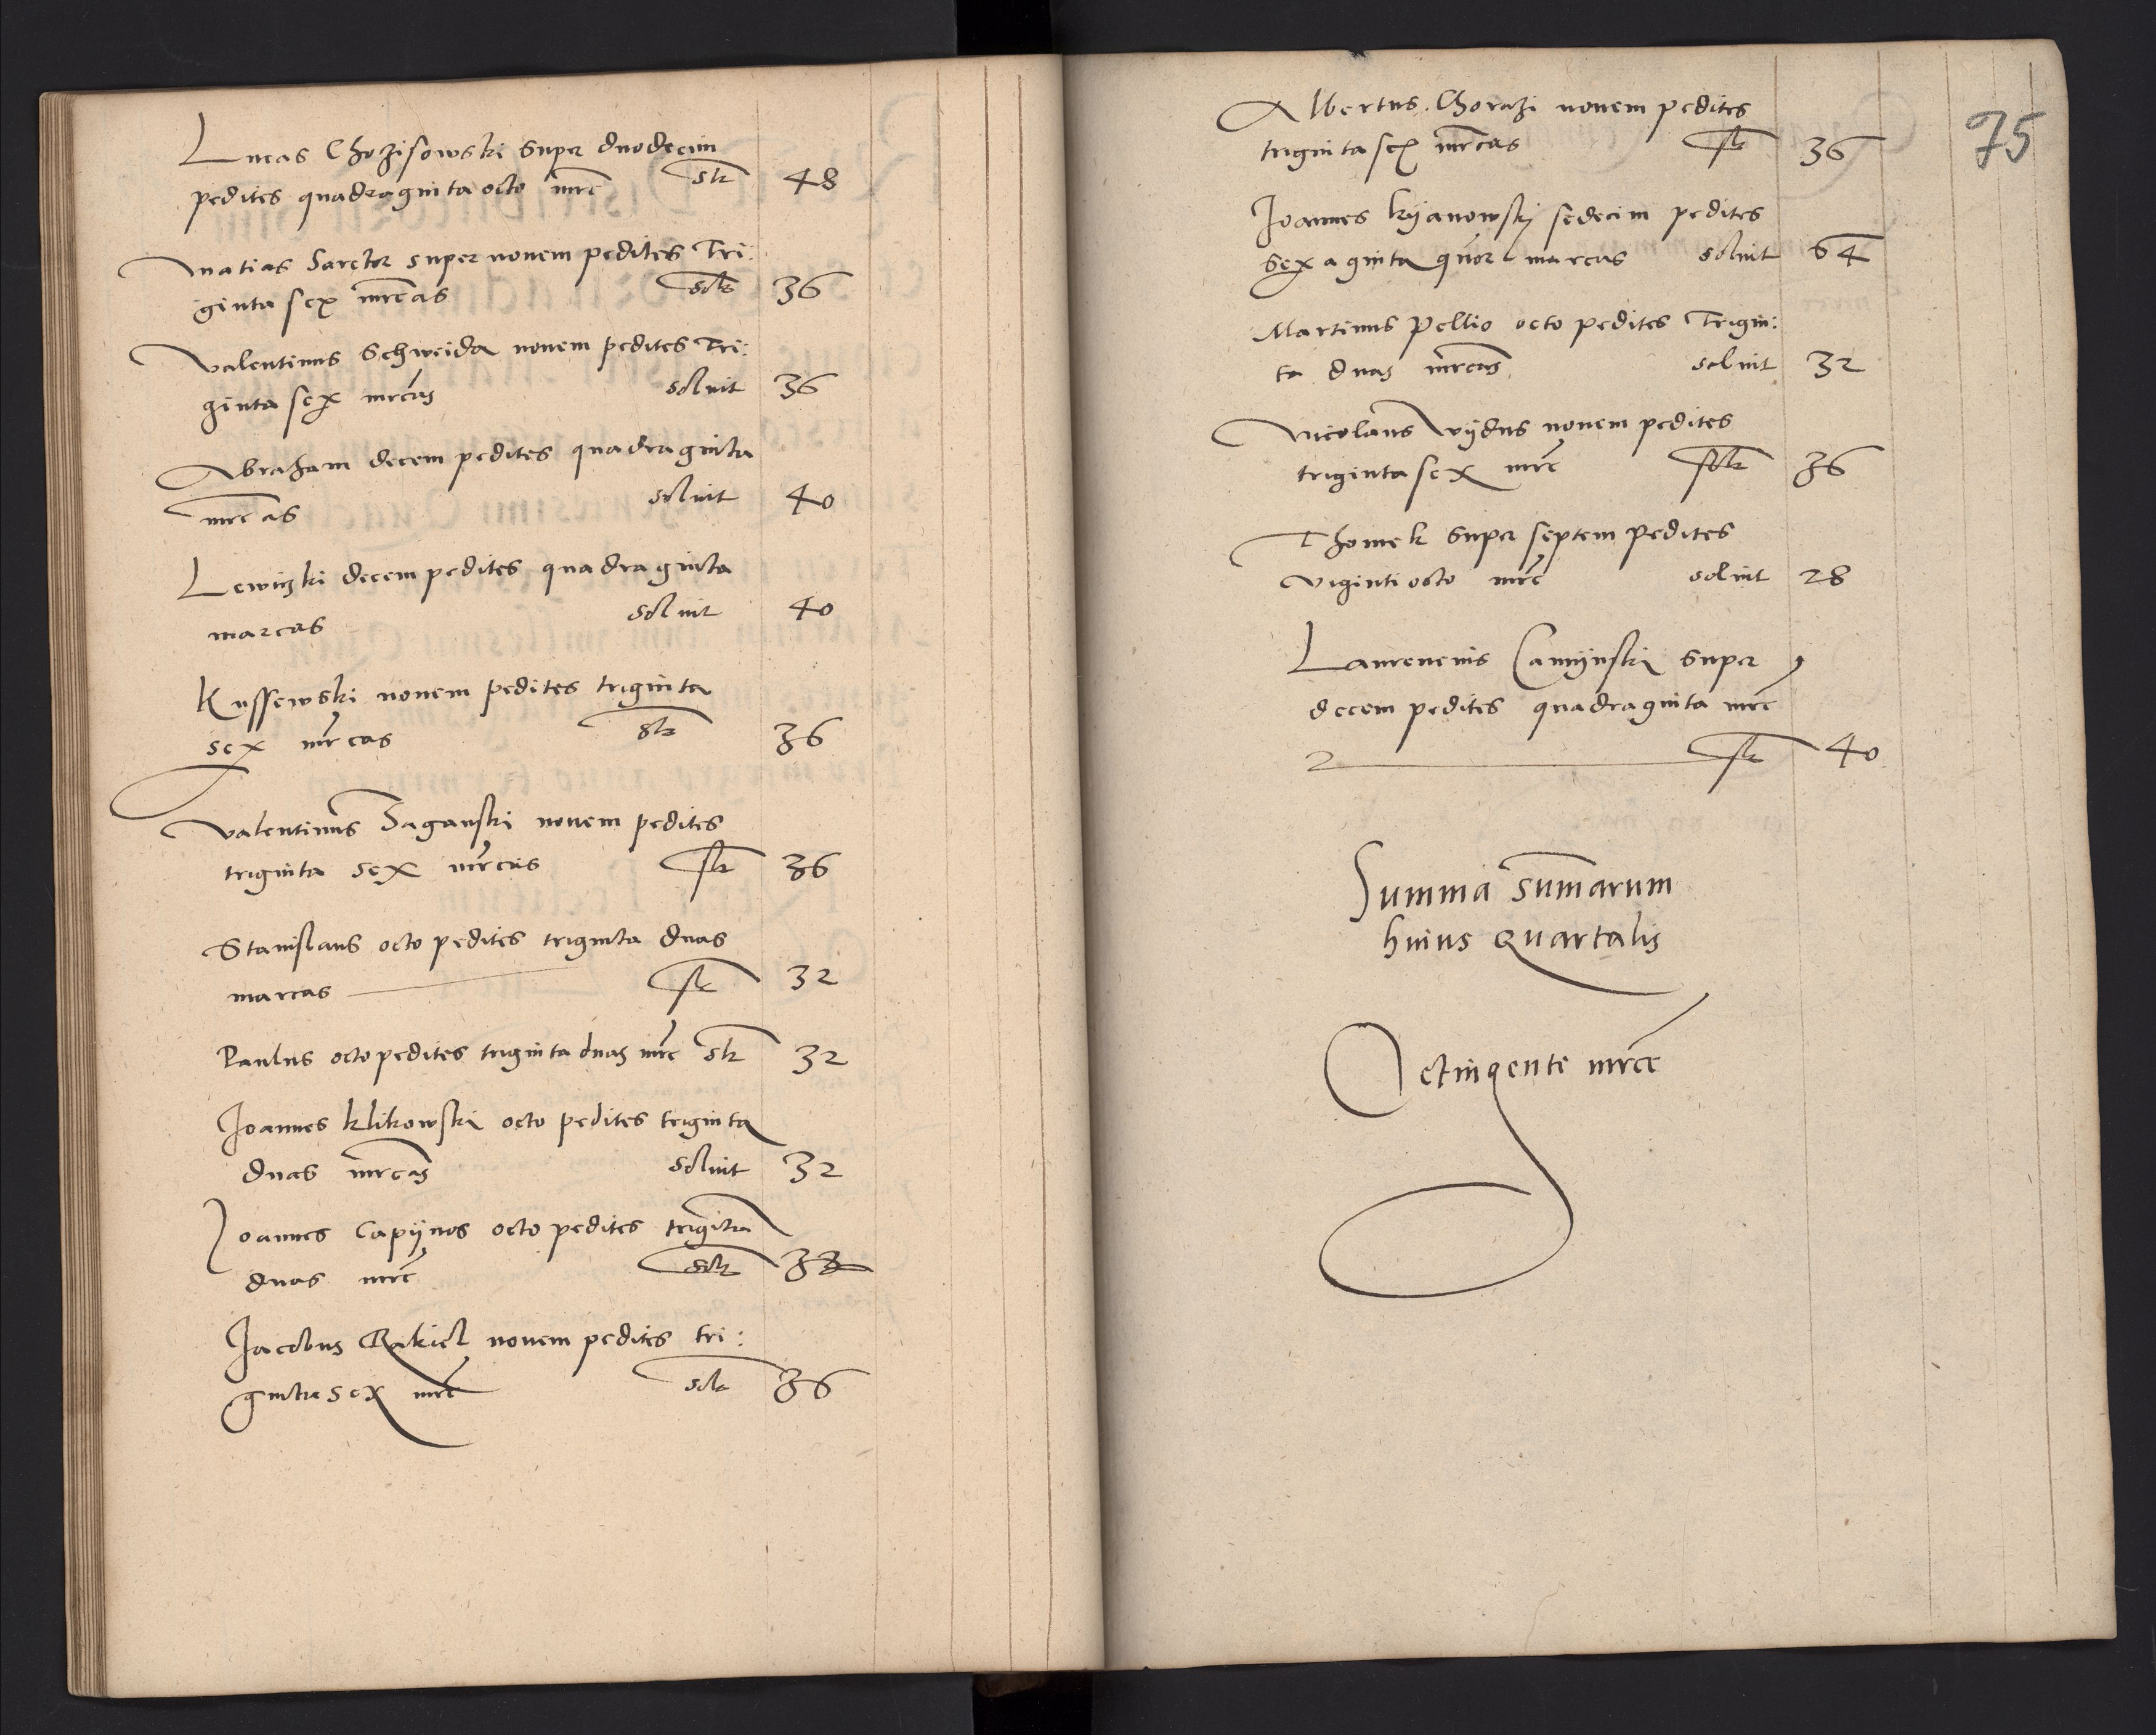 Lucas Chozisowski super duodecim
pedites quadraginta octo mrc slt 48
Matias Sartor super novem pedites Tri:
ginta sex mrcas solt 36
Valentinus Schweida novem pedites Tri:
ginta sex mrcas soluit 36
Abraham decem pedites quadraginta
mrcas soluit 40
Lewiczki decem pedites quadraginta
marcas soluit 40
Kussewski nouem pedites triginta
sex mrcas slt 36
Valentinus Zaganski nouem pedites
triginta sex mrcas slt 36
Stanislaus octo pedites triginta duas
marcas slt 32
Paulus octo pedites triginta duas mrc slt 32
Joannes Klikowski octo pedites triginta
duas mrcas soluit 32
Joannes Capijnos octo pedites triginta
duas mrc solt 32
Jacobus Rakiel nouem pedites tri:
ginta sex mrc solt 36
75
Albertus Chorazi nouem pedites
triginta sex mrcas slt 36
Joannes Kijanowskj sedecim pedites
sexaginta quor marcas soluit 64
Martinus Pellio octo pedites Trigin:
ta duas mrcas soluit 32
Nicolaus Vijdus nouem pedites
triginta sex mrc solt 36
Thomek super septem pedites
viginti octo mrc soluit 28
Laurencius Camijnski super
decem pedites quadraginta mrc
slt 40
Summa sumarum
huius Quartalis
Octingente mrce